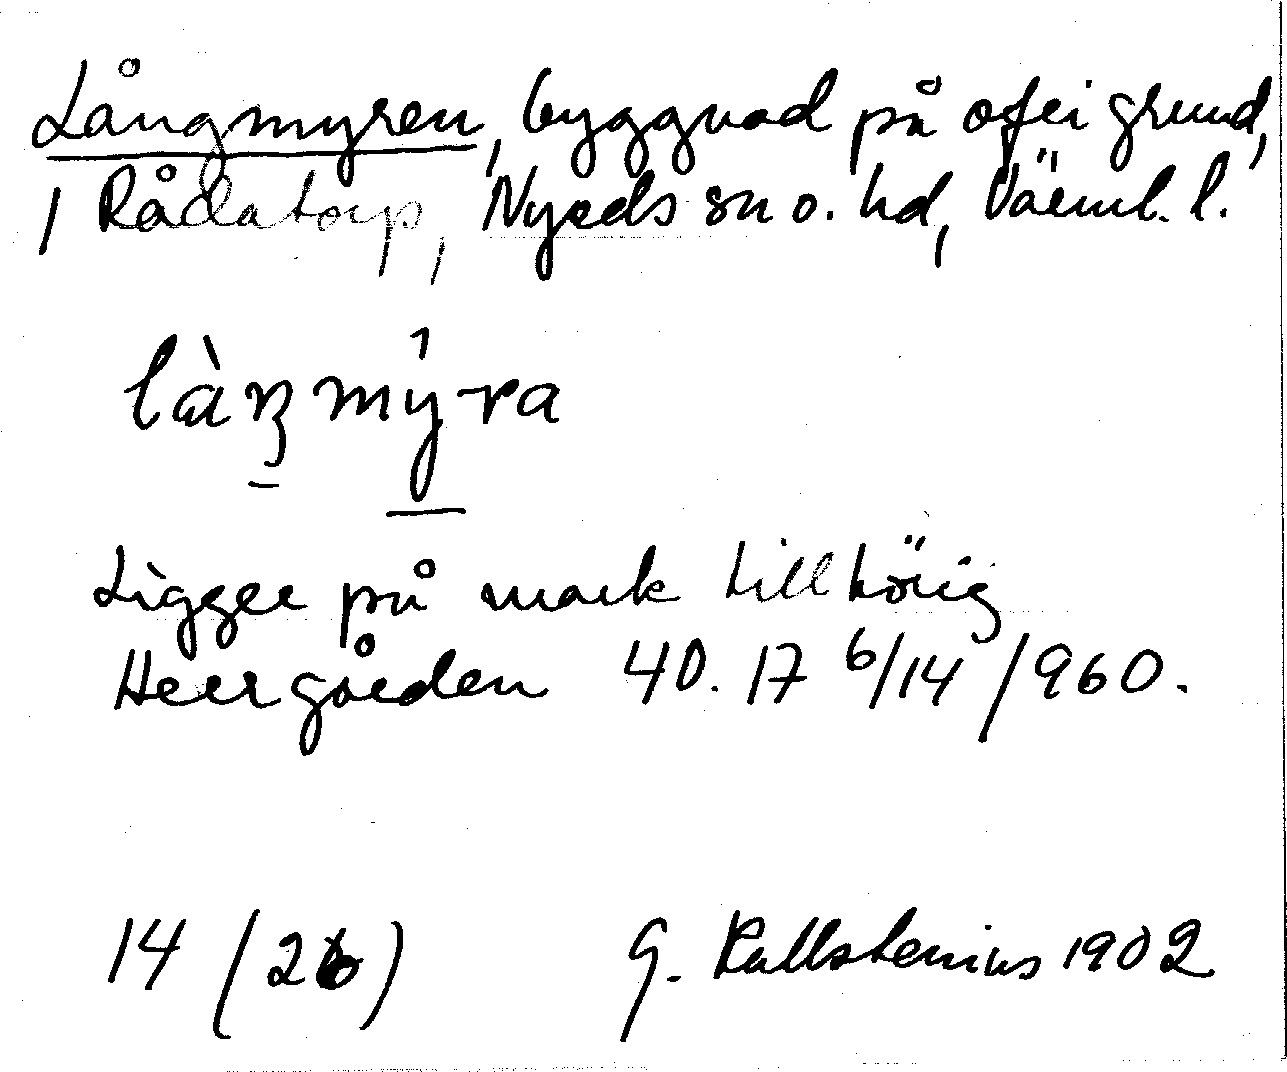 Långmyren, byggnad på ofri grund,
/ Rådatorp, Nyeds sn o. hd, Värml. l.
Ligger på mark tillhörig
Herrgården 40. 17 6/14 /960.
14 (26) G. Kallstenius 1902